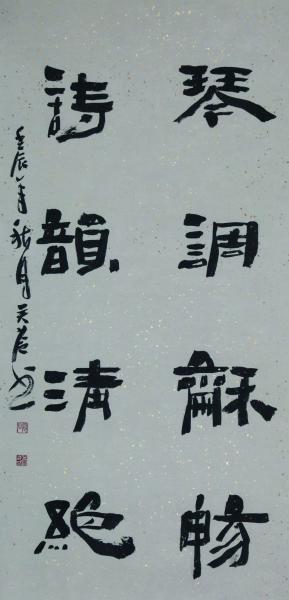 琴調龢暢
詩韻清絕
壬辰年秋月天啓书